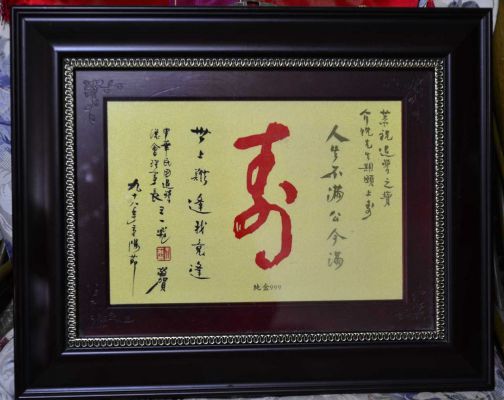 祝退勞之寶
先生期頤上壽
人生不滿公今滿
壽
純金999
世上難逢我竟逢
中華民國退勞
會理事長王一 賀
九八年重陽節